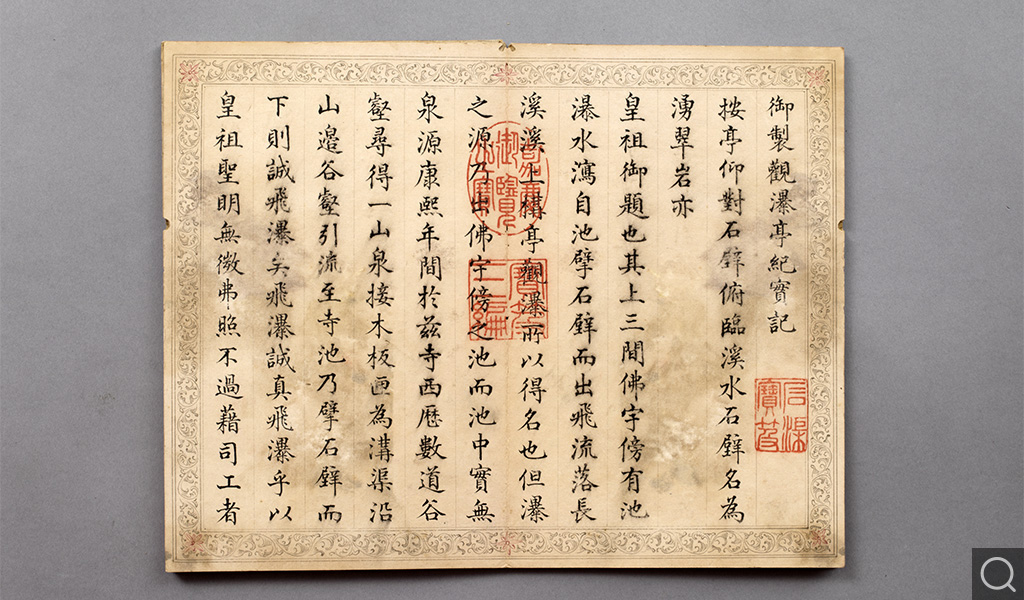 御製觀瀑亭紀實記
按亭仰對石壁俯臨溪水石壁名為
湧翠岩亦
皇祖御題也其上三間佛宇傍有池
瀑水瀉自池擘石壁而出飛流落長
溪溪上構亭觀瀑所以得名也但瀑
之源乃出佛宇傍之池而池中實無
泉源康熙年間於茲寺西歷數道谷
壑尋得一山泉接木板匣為溝渠沿
山邉谷壑引流至寺池乃擘石壁而
下則誠飛瀑矣飛瀑誠真飛瀑乎以
皇祖聖明無微弗照不過藉司工者
嘉慶御覽之寶
寶笈三編
石渠寶笈